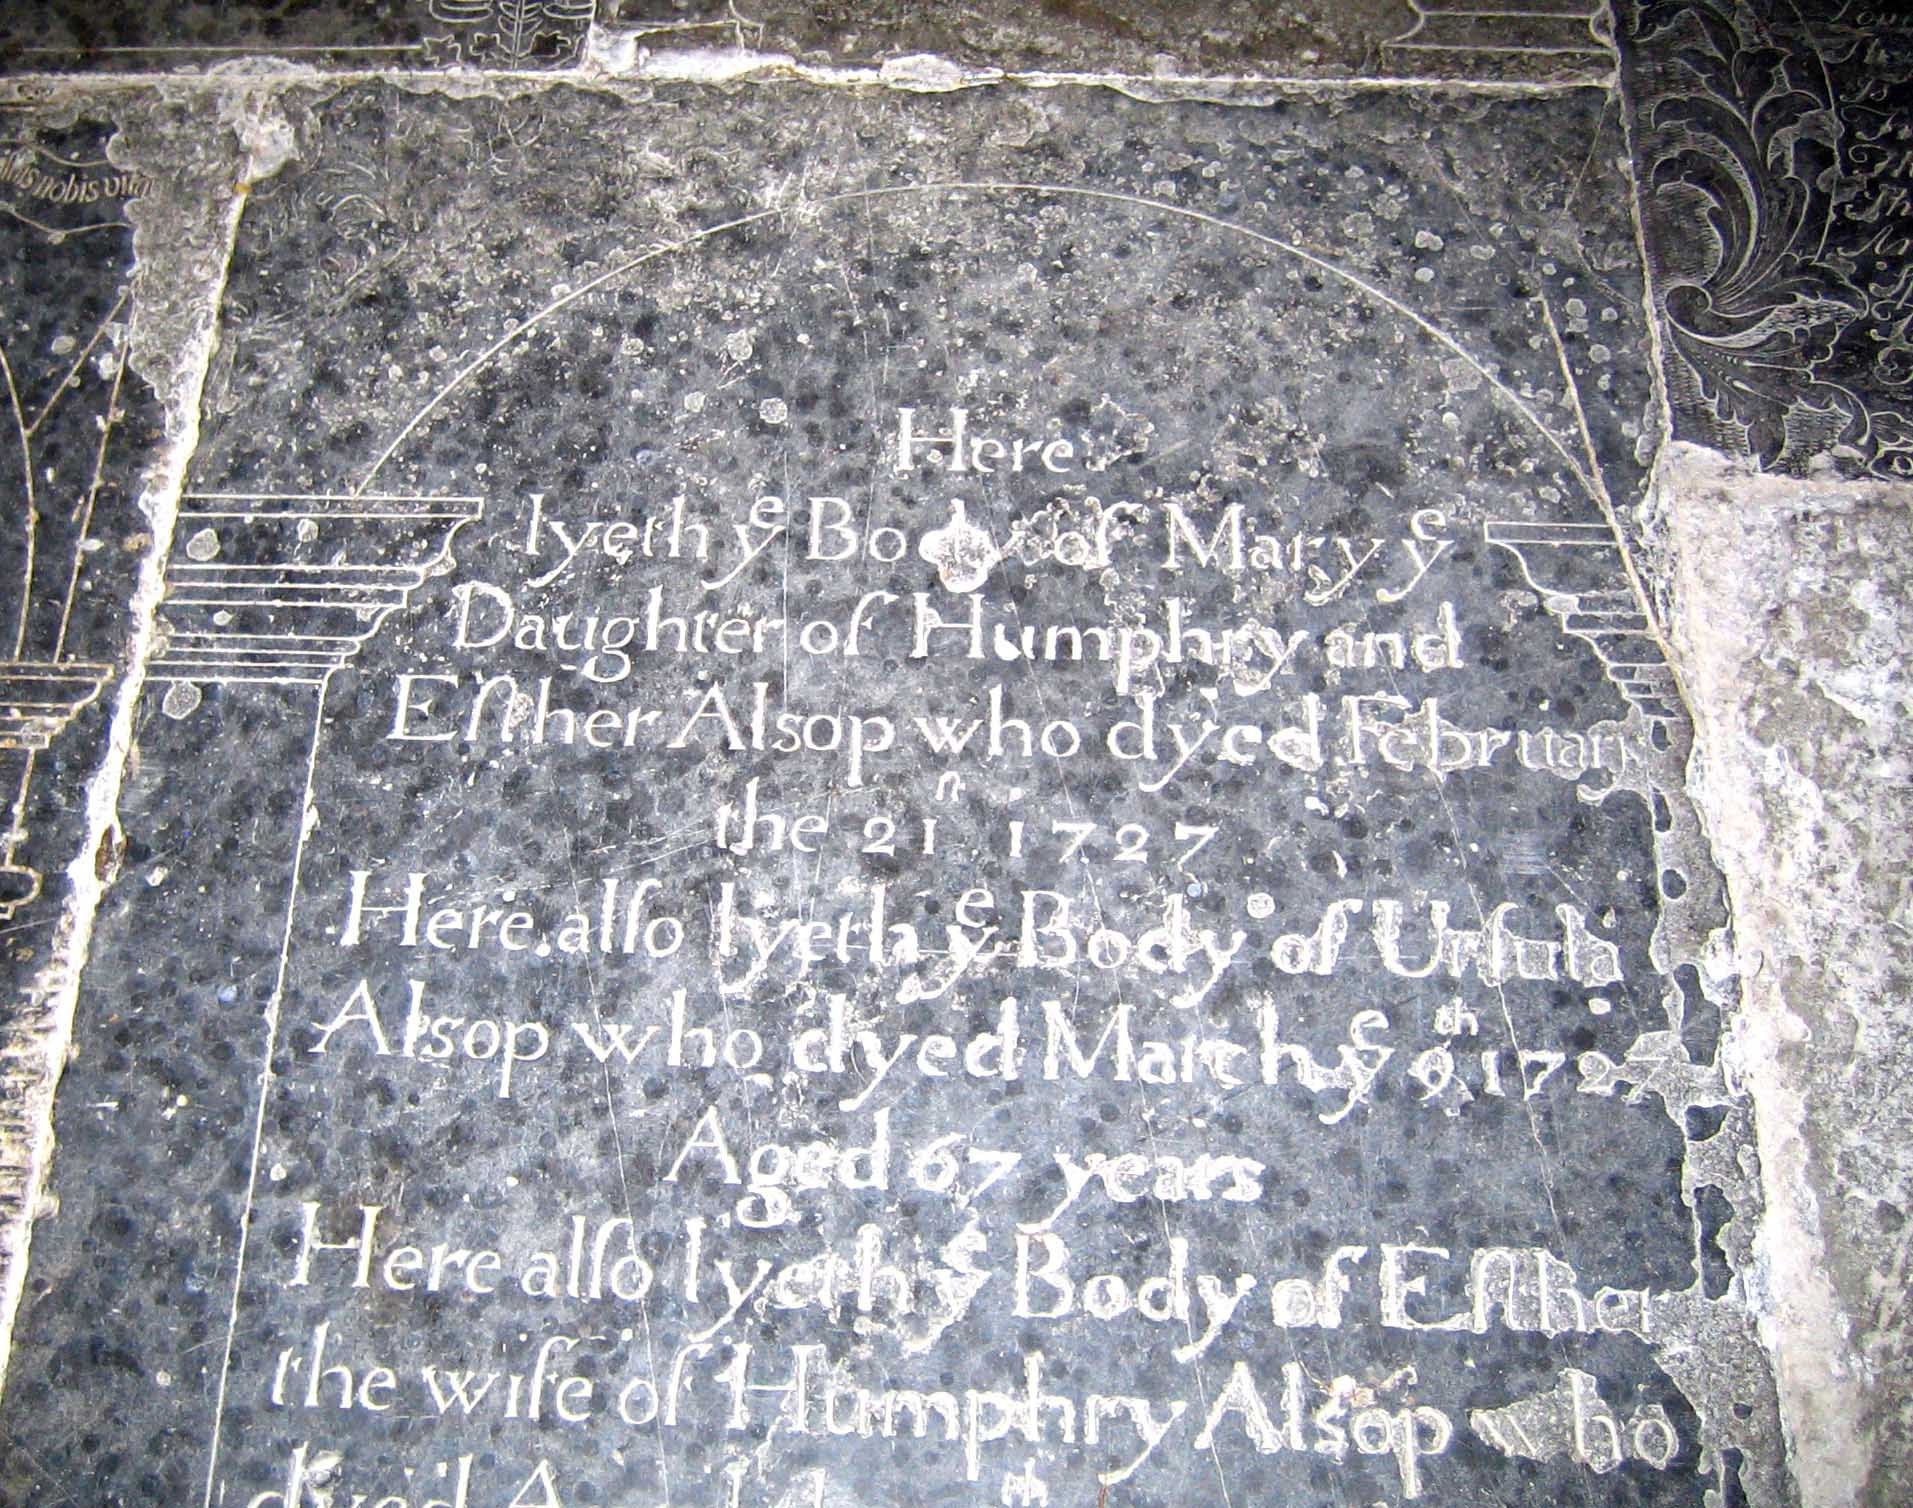 nobis
Here
lyeth yᵉ Body of Mary yᵉ
Daughter of Humphry and
Eſther Alsop who dyed February
the 21ⁿ 1727
Here alſo lyeth yᵉ Body of Urſula
Alsop who dyed March yᵉ 9ᵗʰ 1727
Aged 67 years
Here alſo lyeth yᵉ Body of Eſther
the wife of Humphry Alsop who
dyed